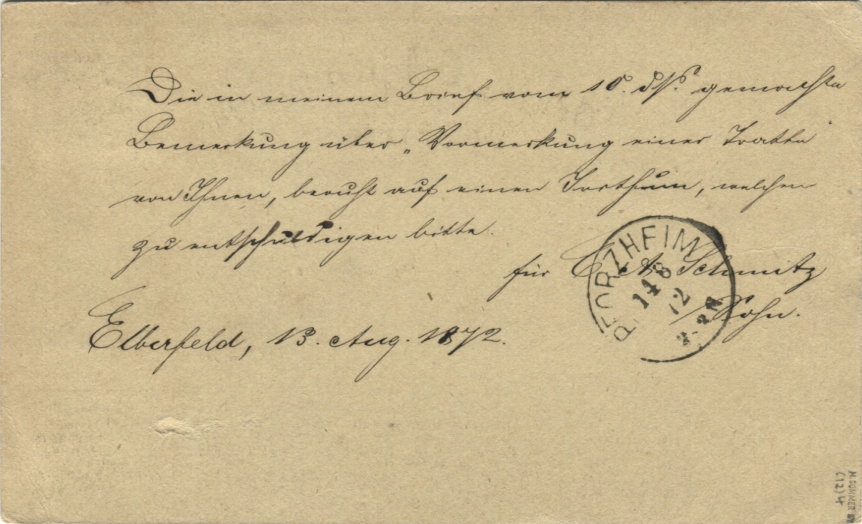 Die in meinem Brief vom 10. ds. gemachte
Bemerkung über „Vormerkung einer Tratte
von Ihnen, beruht auf einen Irrthum, welchen
zu entschuldigen bitte.
für C. A. Schmitz
Sohn.
Elberfeld, 13. Aug. 1872.
PFORZHEIM
14 8
72
(12) 4